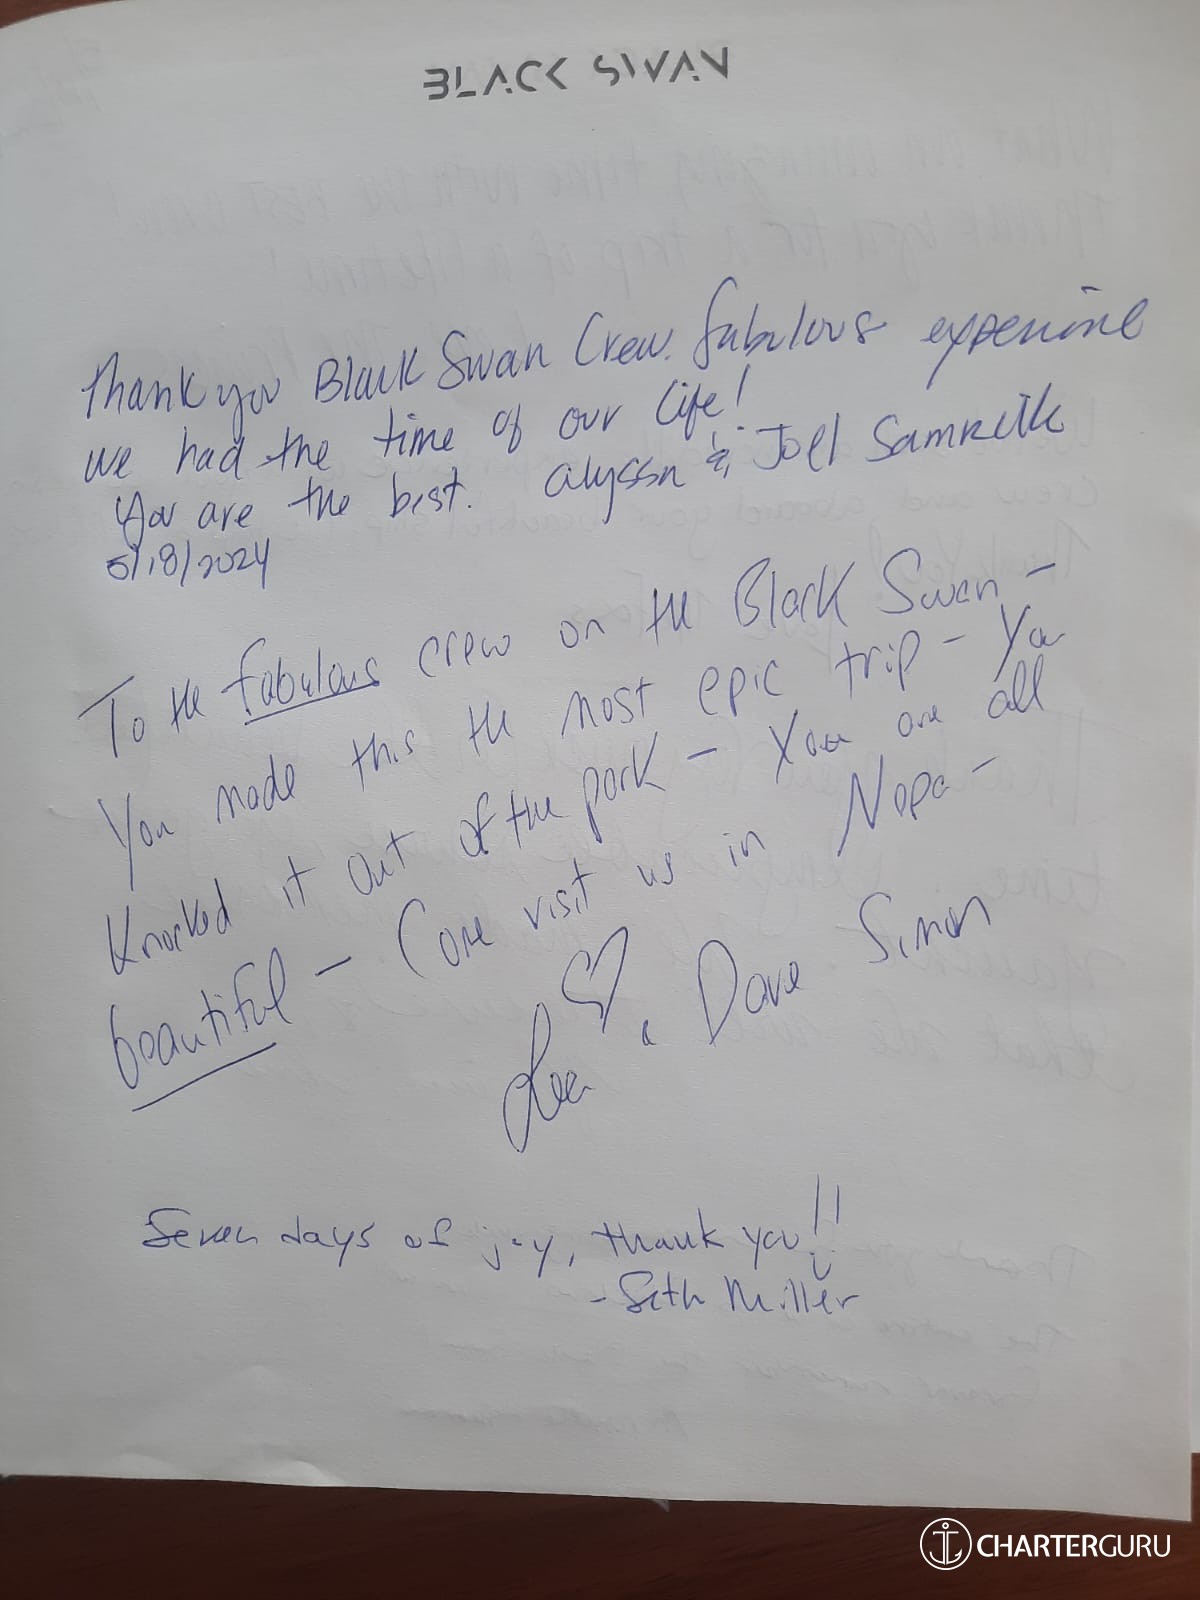 BLACK SWAN
Thank you Black Swan Crew. Fabulous experience
we had the time of our life!
You are the best. Alyssa & Joel
5/18/2024
To the fabulous crew on the Black Swan -
You made this the most epic trip - You
Knocked it out of the park - You are all
beautiful - Come visit us in Napa -
♡
& Dave Simon
Seven days of joy, thank you!!
- Seth Miller
CHARTERGURU